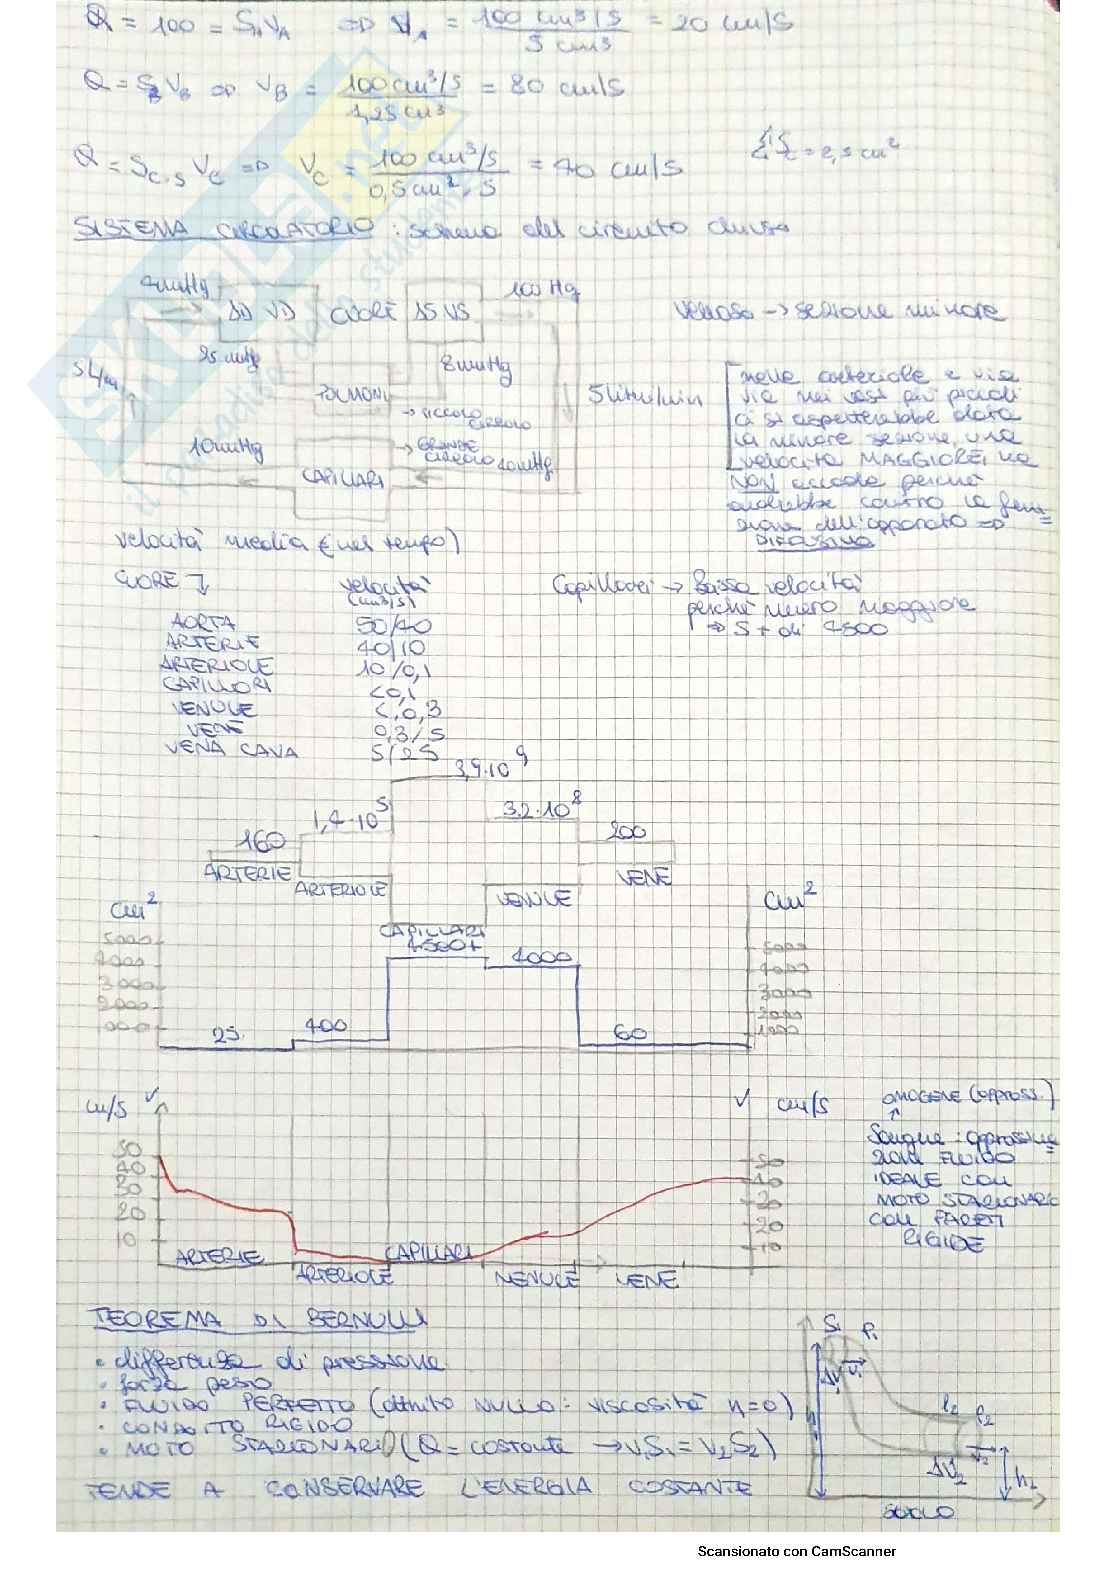 Q = 100 = S_A V_A => V_A = 100 cm³/s / 5 cm³ = 20 cm/s
Q = S_B V_B => V_B = 100 cm³/s / 1,25 cm³ = 80 cm/s
Q = S_C·5 V_C => V_C = 100 cm³/s / 0,5 cm²·5 = 40 cm/s
ΣS_C = 2,5 cm²
SISTEMA CIRCOLATORIO : schema del circuito chiuso
4mmHg
AD VD CUORE AS VS
100 Hg
25 mmHg
8mmHg
5L/m
POLMONI
→ PICCOLO CIRCOLO
5 litri/min
10mmHg
→ GRANDE CIRCOLO
40mmHg
CAPILLARI
Venoso → sezione minore
nelle arteriole e via
via nei vasi più piccoli
ci si aspetterebbe data
la minore sezione, una
velocità MAGGIORE, ma
NON accade perché
andrebbe contro la fun=
zione dell'apparato =>
DIFFUSIVO
velocità media (nel tempo)
CUORE ↓
velocità
(cm³/s)
AORTA 50/40
ARTERIE 40/10
ARTERIOLE 10/0,1
CAPILLARI <0,1
VENULE <0,3
VENE 0,3/5
VENA CAVA 5/25
Capillari → Bassa velocità
perché numero maggiore
=> S + di 4500
3,9·10⁹
1,4·10⁵
3,2·10⁸
160
200
ARTERIE
ARTERIOLE
VENULE
VENE
cm²
cm²
CAPILLARI
4500+
5000
4000
3000
2000
1000
25
400
4000
60
5000
4000
3000
2000
1000
cm/s v
v cm/s
50
40
30
20
10
50
40
30
20
10
ARTERIE
ARTERIOLE
CAPILLARI
VENULE
VENE
OMOGENE (appross.)
↑
Sangue : approssima=
zione FLUIDO
IDEALE CON
MOTO STAZIONARIO
CON PARETI
RIGIDE
TEOREMA DI BERNULLI
• differenza di pressione
• forza peso
• FLUIDO PERFETTO (attrito NULLO : viscosità η=0)
• CONDOTTO RIGIDO
• MOTO STAZIONARIO (Q = costante → v₁S₁ = v₂S₂)
TENDE A CONSERVARE L'ENERGIA COSTANTE
S₁ P₁
ΔV₁ v₁
P₂
v₂
ΔV₂
h₂
SUOLO
Scansionato con CamScanner